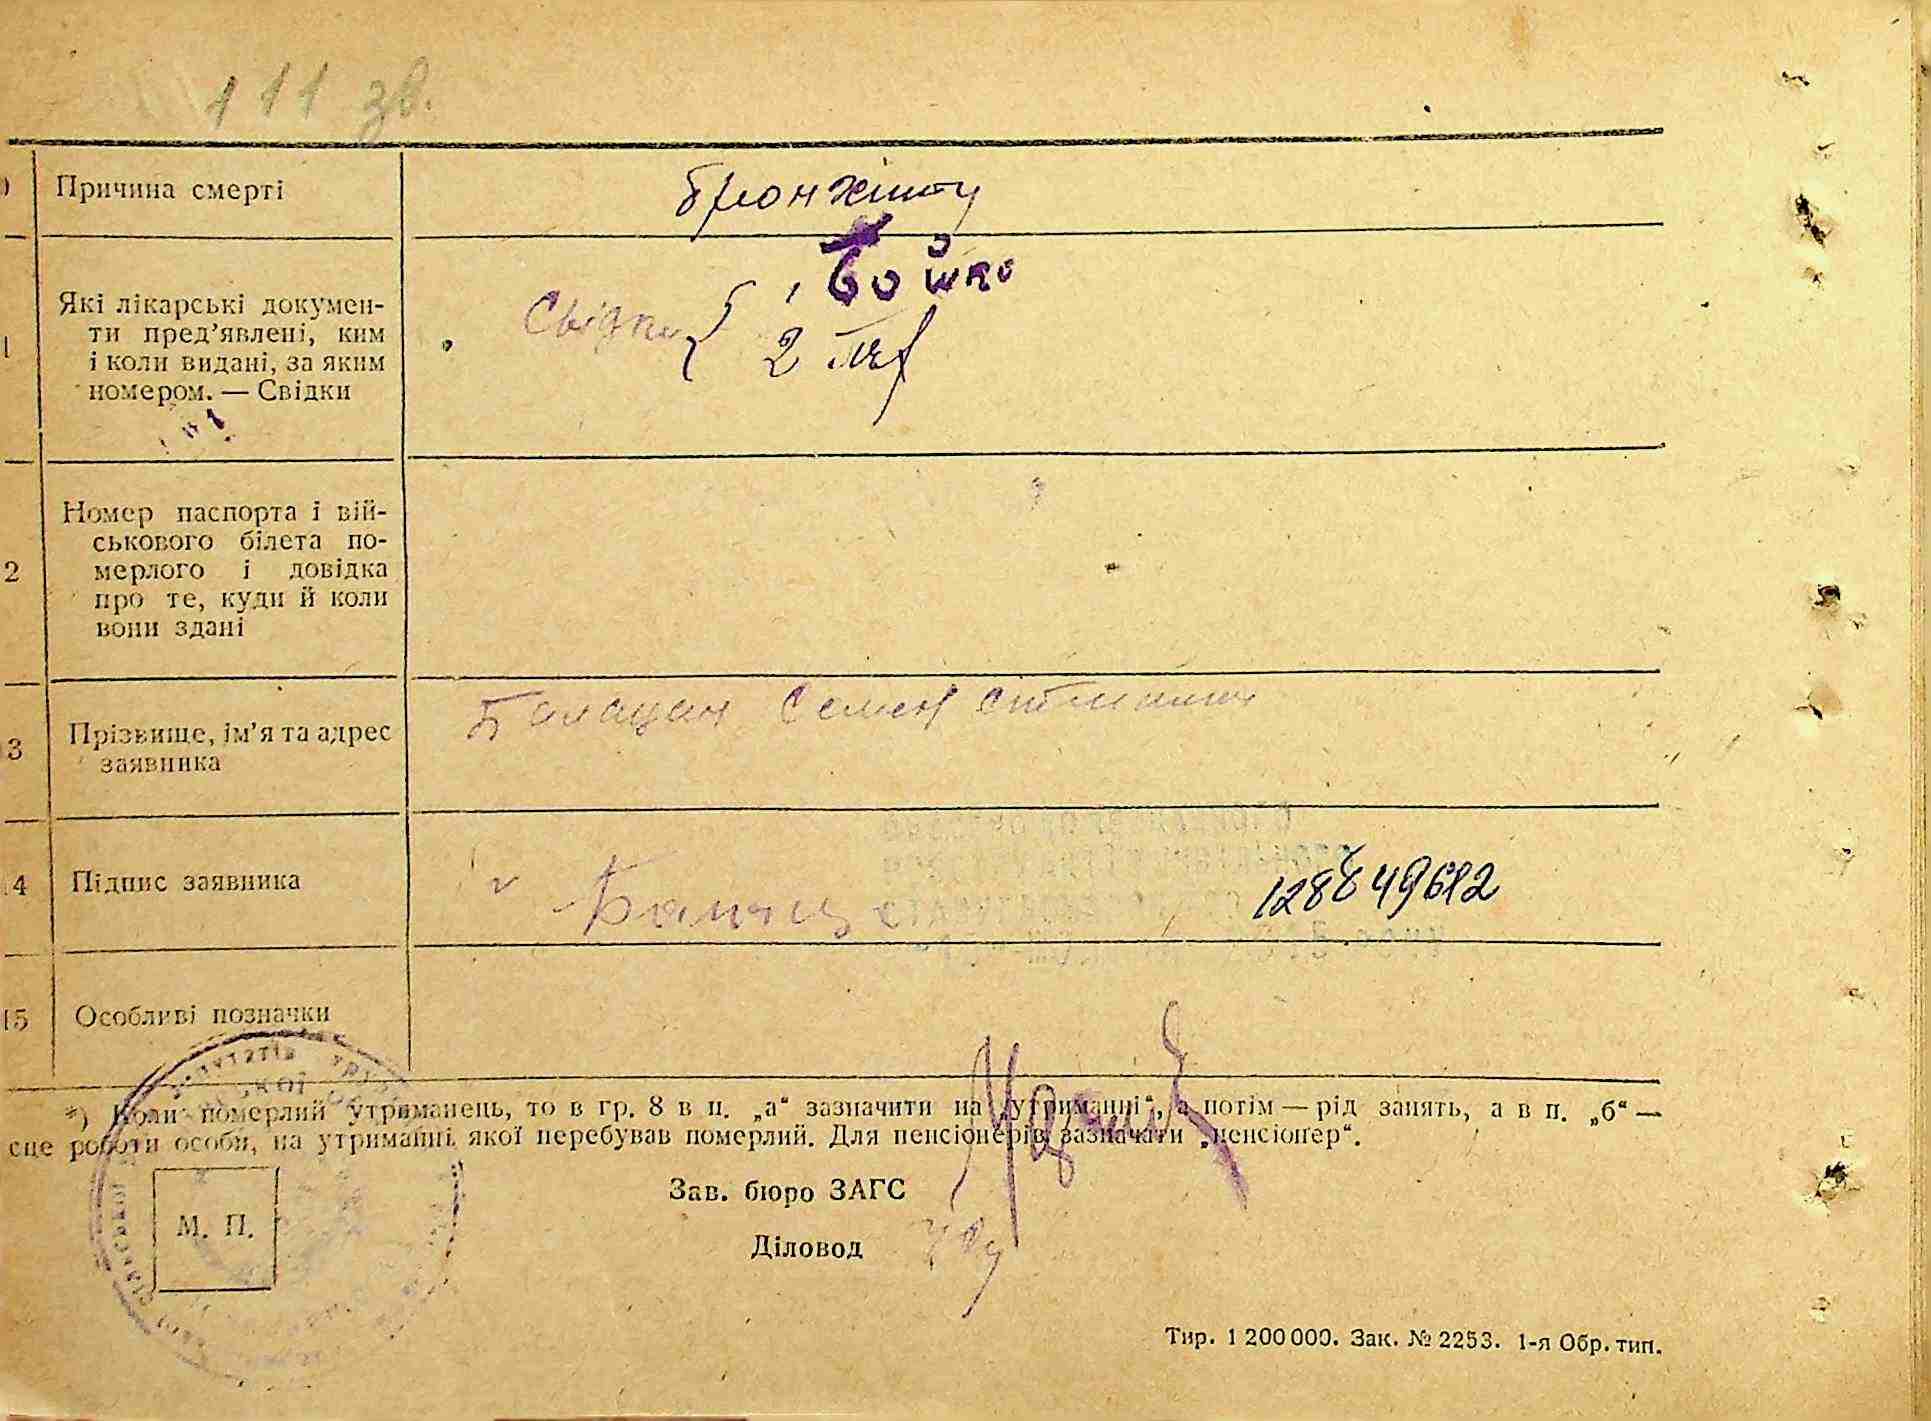 111 зв.
Причина смерті
бронхіту
1 Які лікарські докумен-
ти пред’явлені, ким
і коли видані, за яким
номером. — Свідки
Свідки { 1 Бойко
2
2 Номер паспорта і вій-
ськового білета по-
мерлого і довідка
про те, куди й коли
вони здані
3 Прізвище, ім’я та адрес
заявника
Балацан Семен
14 Підпис заявника
v
15 Особливі позначки
*) Коли померлий утриманець, то в гр. 8 в п. „а“ зазначити на „утриманні“, а потім — рід занять, а в п. „б“ —
сце роботи особи, на утриманні якої перебував померлий. Для пенсіонерів зазначати „пенсіонер“.
Зав. бюро ЗАГС
М. П.
Діловод
Тир. 1 200 000. Зак. № 2253. 1-я Обр. тип.